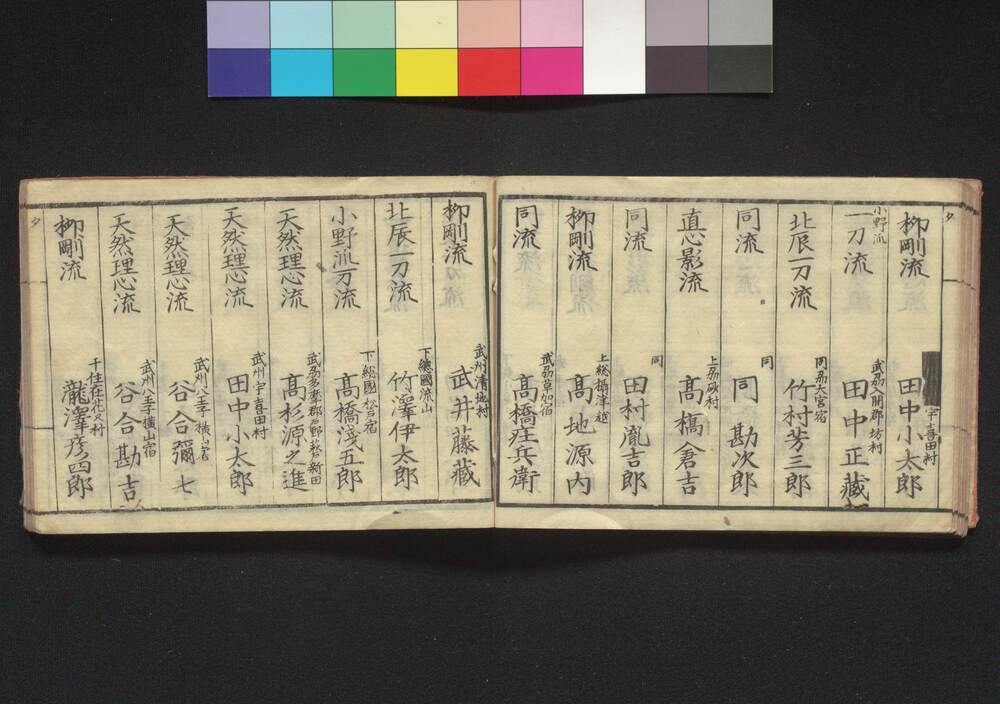 タ
柳剛流
宇喜田村
田中小太郎
小野派
一刀流
武州入間郡坊村
田中正藏
北辰一刀流
同州大宮宿
竹村芳三郎
同流
同
同勘次郎
直心影流
上州砂村
高橋倉吉
同流
同
田村胤吉郎
柳剛流
上総
高地源内
同流
武州草加宿
高橋庄兵衛
柳剛流
武州清地村
武井藤藏
北辰一刀流
下總國流山
竹澤伊太郎
小野派一刀流
下総國松戸宿
高橋淺五郎
天然理心流
武州多摩郡新田
高杉源之進
天然理心流
武州宇喜田村
田中小太郎
天然理心流
武州八王子横山宿
谷合彌七
天然理心流
武州八王子横山宿
谷合勘吉
柳剛流
千住在花又村
瀧澤彦四郎
タ